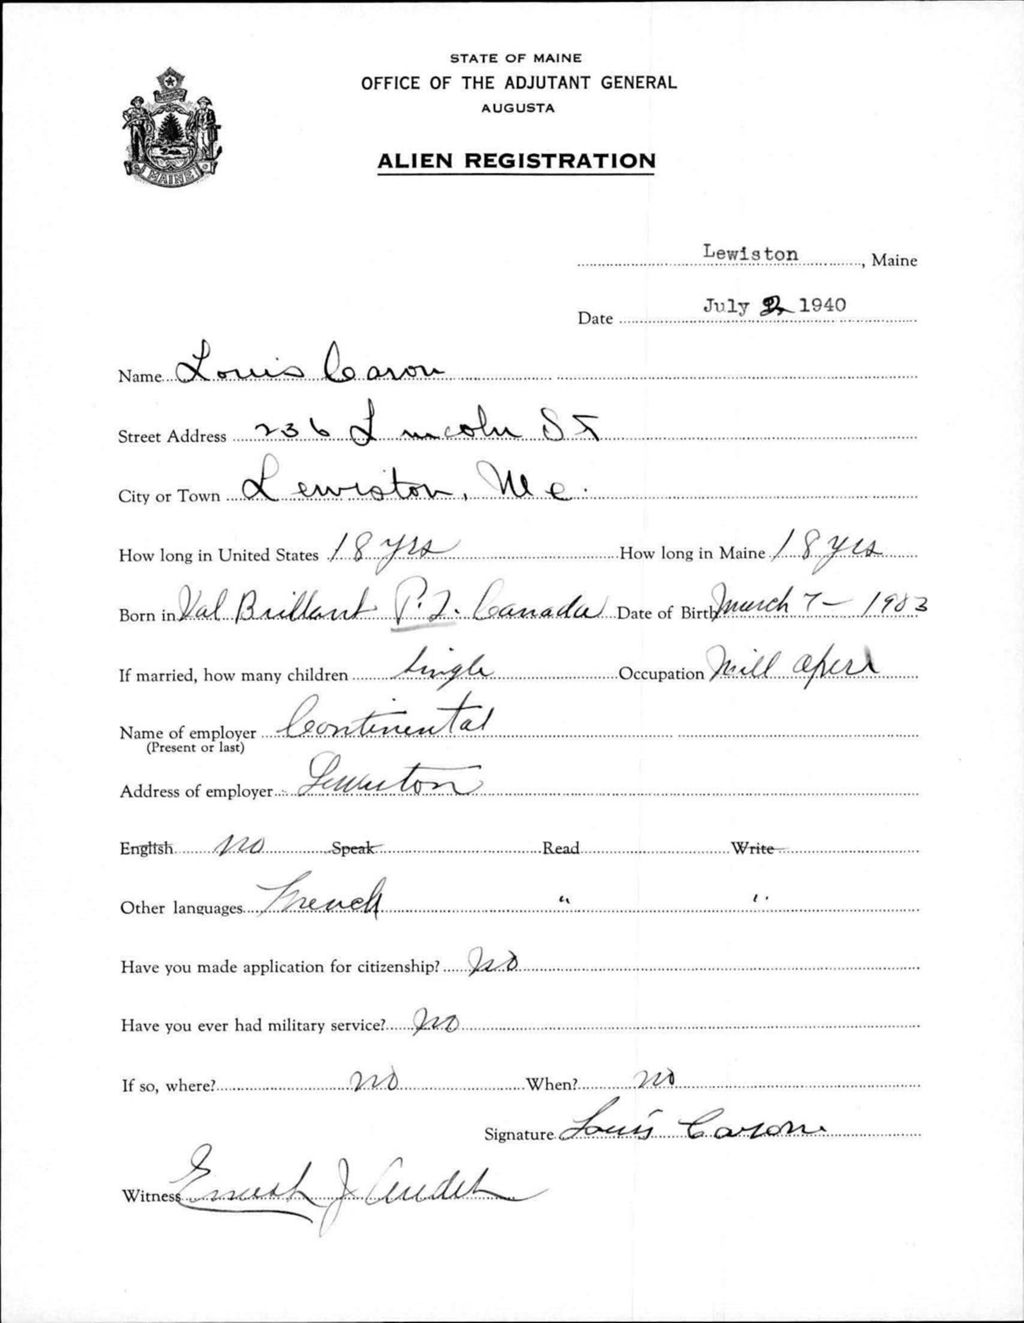 STATE OF MAINE
OFFICE OF THE ADJUTANT GENERAL
AUGUSTA
ALIEN REGISTRATION
MAINE
Lewiston, Maine
Date July 2, 1940
Name Louis Caron
Street Address 236 Lincoln St
City or Town Lewiston, Me.
How long in United States 18 yrs How long in Maine 18 yrs
Born in Val Brillant P.Q. Canada Date of Birth March 7 - 1903
If married, how many children Single Occupation Mill oper
Name of employer Continental
(Present or last)
Address of employer Lewiston
English No Speak Read Write
Other languages French " "
Have you made application for citizenship? No
Have you ever had military service? No
If so, where? no When? no
Signature Louis Caron
Witness Ernest J Audet